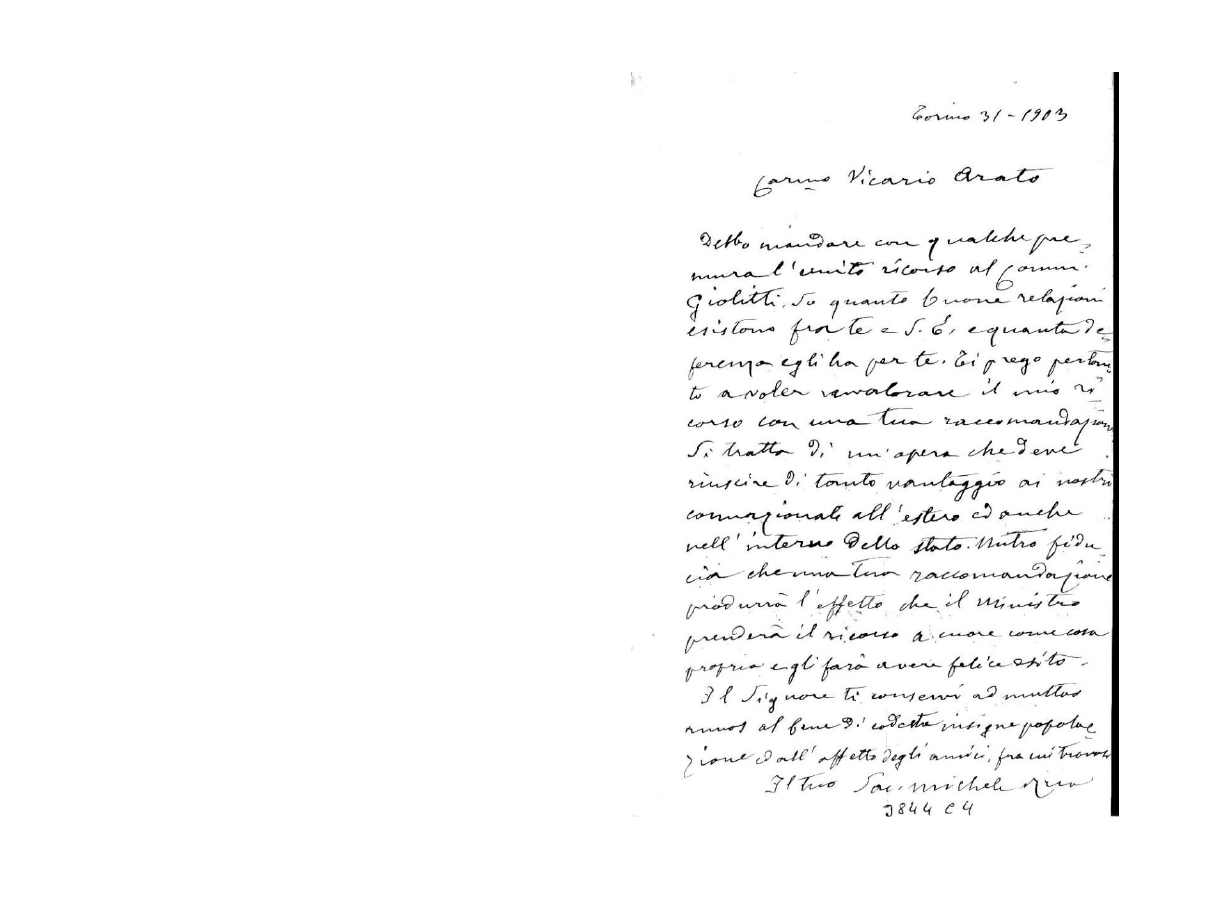 Torino 31 - 1903
Carmo Vicario Arato
Debbo mandare con qualche pre-
mura l'unito ricorso al Comm.
Giolitti. So quanto buone relazioni
esistono fra te e S. E. e quanta de-
ferenza egli ha per te. Ti prego pertan-
to a voler avvalorare il mio ri-
corso con una tua raccomandazione
Si tratta di un'opera che deve
riuscire di tanto vantaggio ai nostri
connazionali all'estero ed anche
nell'interno dello stato. Nutro fidu-
cia che una tua raccomandazione
produrrà l'effetto che il Ministro
prenderà il ricorso a cuore come cosa
propria e gli farà avere felice esito.
Il Signore ti conservi ad multos
annos al bene di codesta insigne popola-
zione ed all'affetto degli amici, fra cui trovasi
Il tuo Sac. Michele
3844 C 4